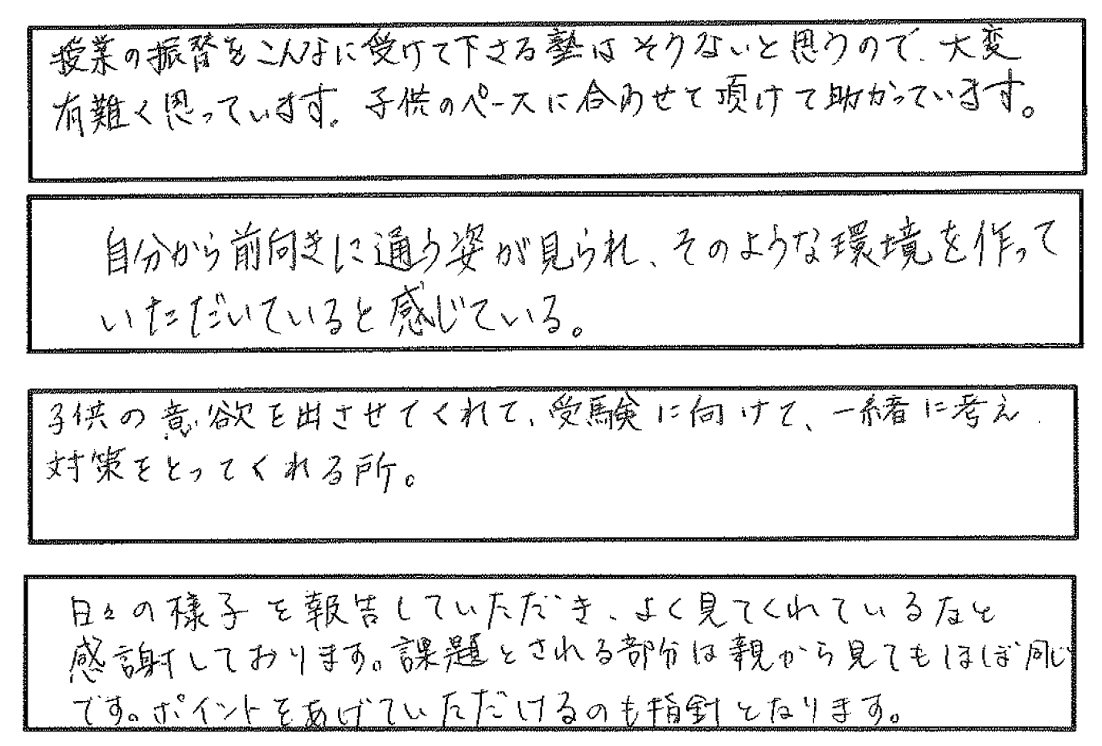 授業の振替をこんなに受けて下さる塾はそうないと思うので、大変
有難く思っています。子供のペースに合わせて頂けて助かっています。
自分から前向きに通う姿が見られ、そのような環境を作って
いただいていると感じている。
子供の意欲を出させてくれて、受験に向けて、一緒に考え
対策をとってくれる所。
日々の様子を報告していただき、よく見てくれているなと
感謝しております。課題とされる部分は親から見てもほぼ同じ
です。ポイントをあげていただけるのも指針となります。